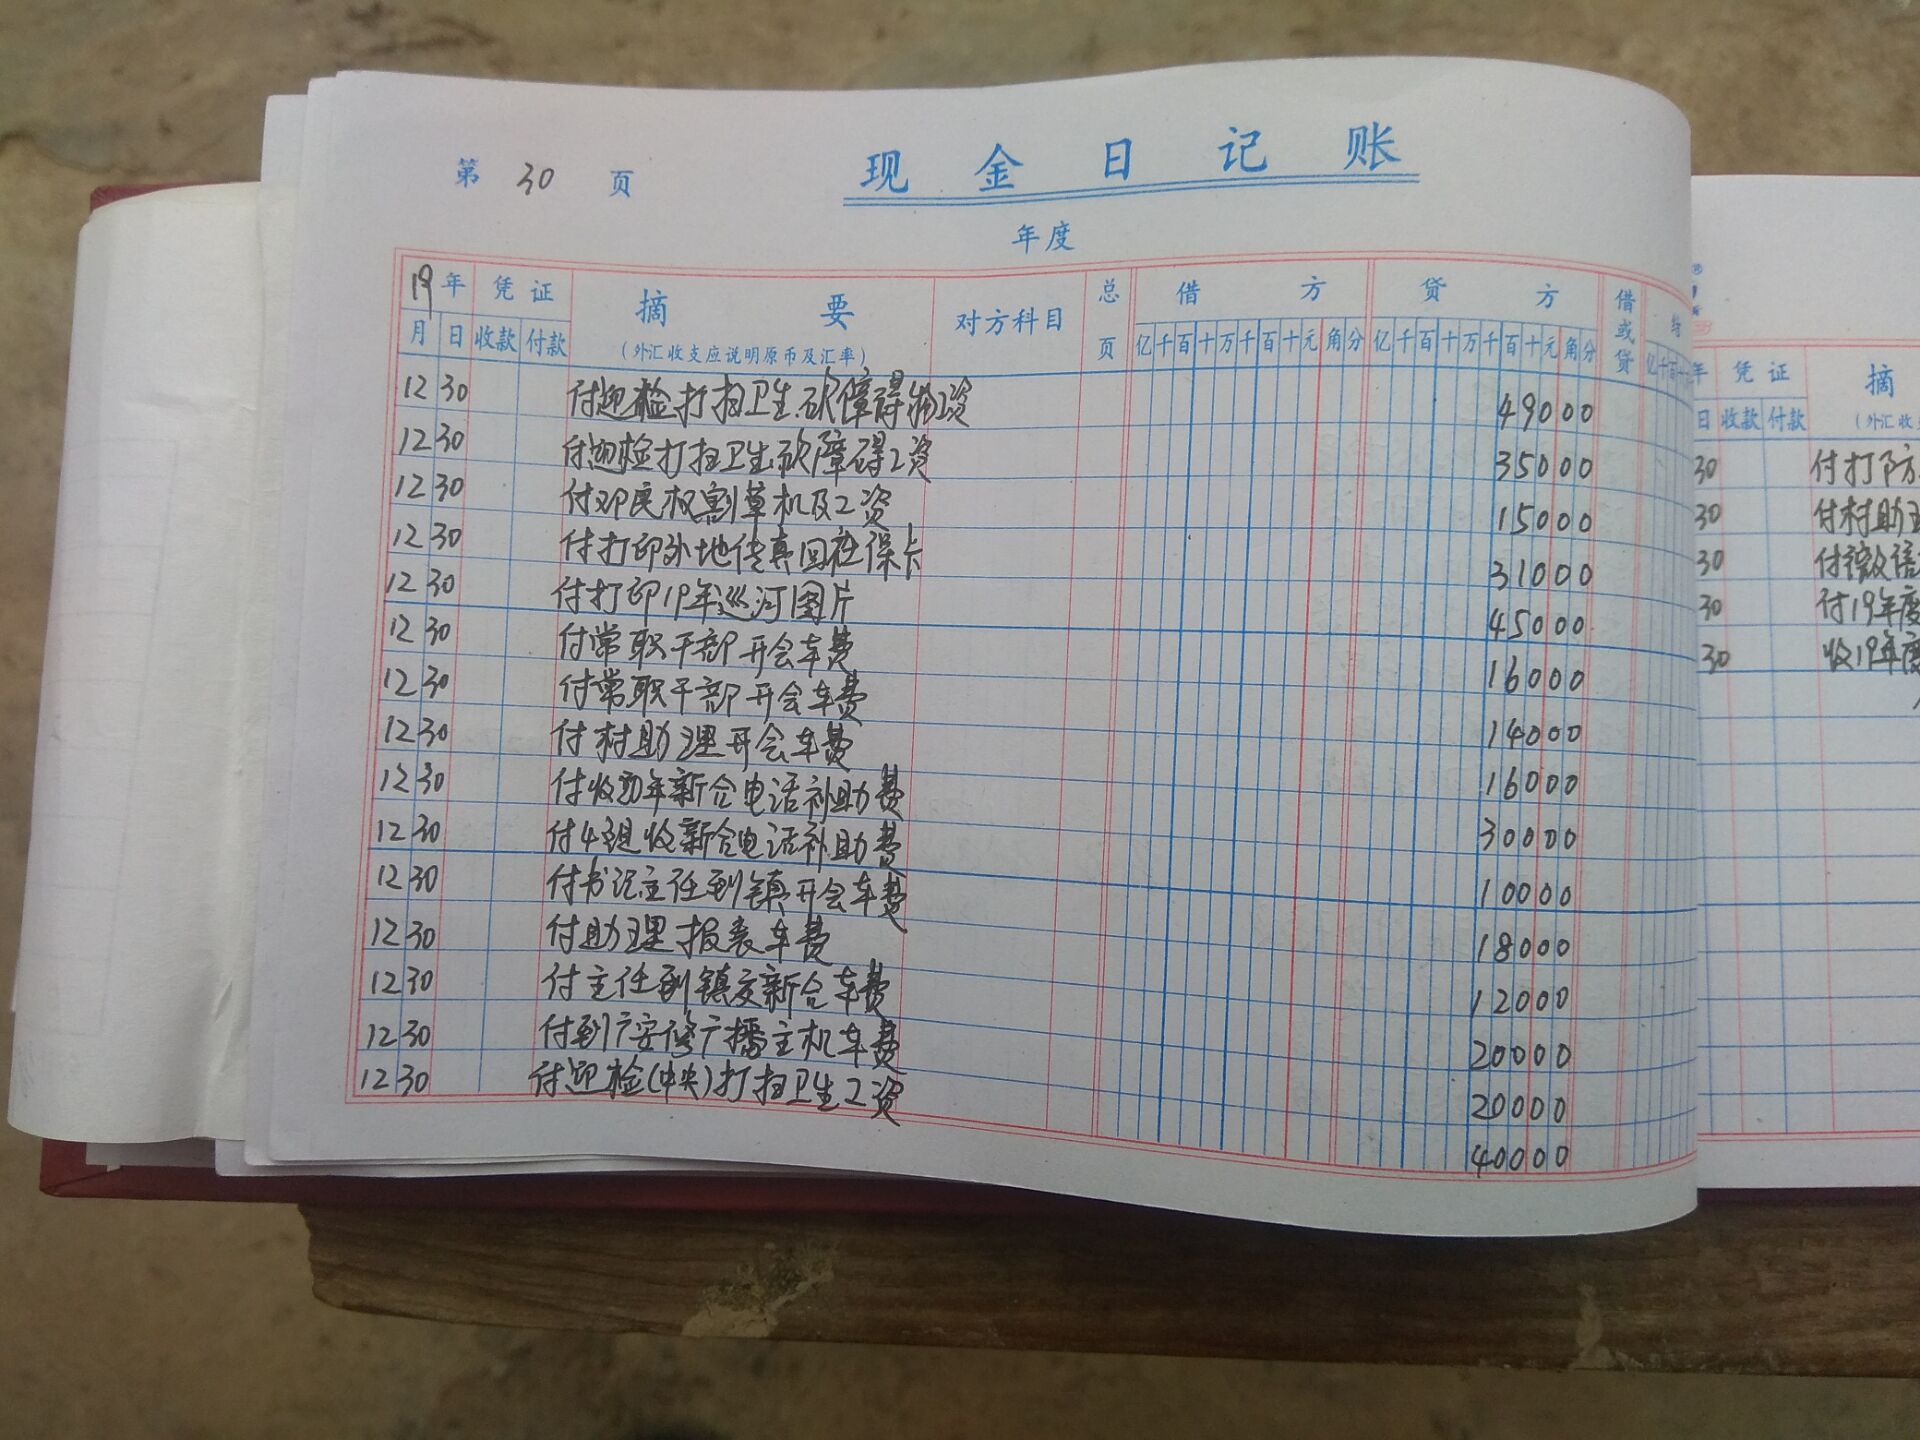 第 30 页
现金日记账
年度
19年 凭证 摘要 对方科目 总页 借方 贷方 借或贷
月 日 收款 付款 (外汇收支应说明原币及汇率) 亿千百十万千百十元角分 亿千百十万千百十元角分
12 30 付迎检打扫卫生砍障碍物工资 49000
12 30 付迎检打扫卫生砍障碍工资 35000
12 30 付邓民权割草机及工资 15000
12 30 付打印外地传真回社保卡 31000
12 30 付打印19年巡河图片 45000
12 30 付常职干部开会车费 16000
12 30 付常职干部开会车费 14000
12 30 付村助理开会车费 16000
12 30 付收年新合电话补助费 30000
12 30 付4组收新合电话补助费 10000
12 30 付书记主任到镇开会车费 18000
12 30 付助理报表车费 12000
12 30 付主任到镇交新合车费 20000
12 30 付到广安修广播主机车费 20000
12 30 付迎检(中央)打扫卫生工资 40000
年 凭证 摘
日 收款 付款 (外汇收
30 付打防
30 付村助
30 付
30 付19年度
30 收19年度